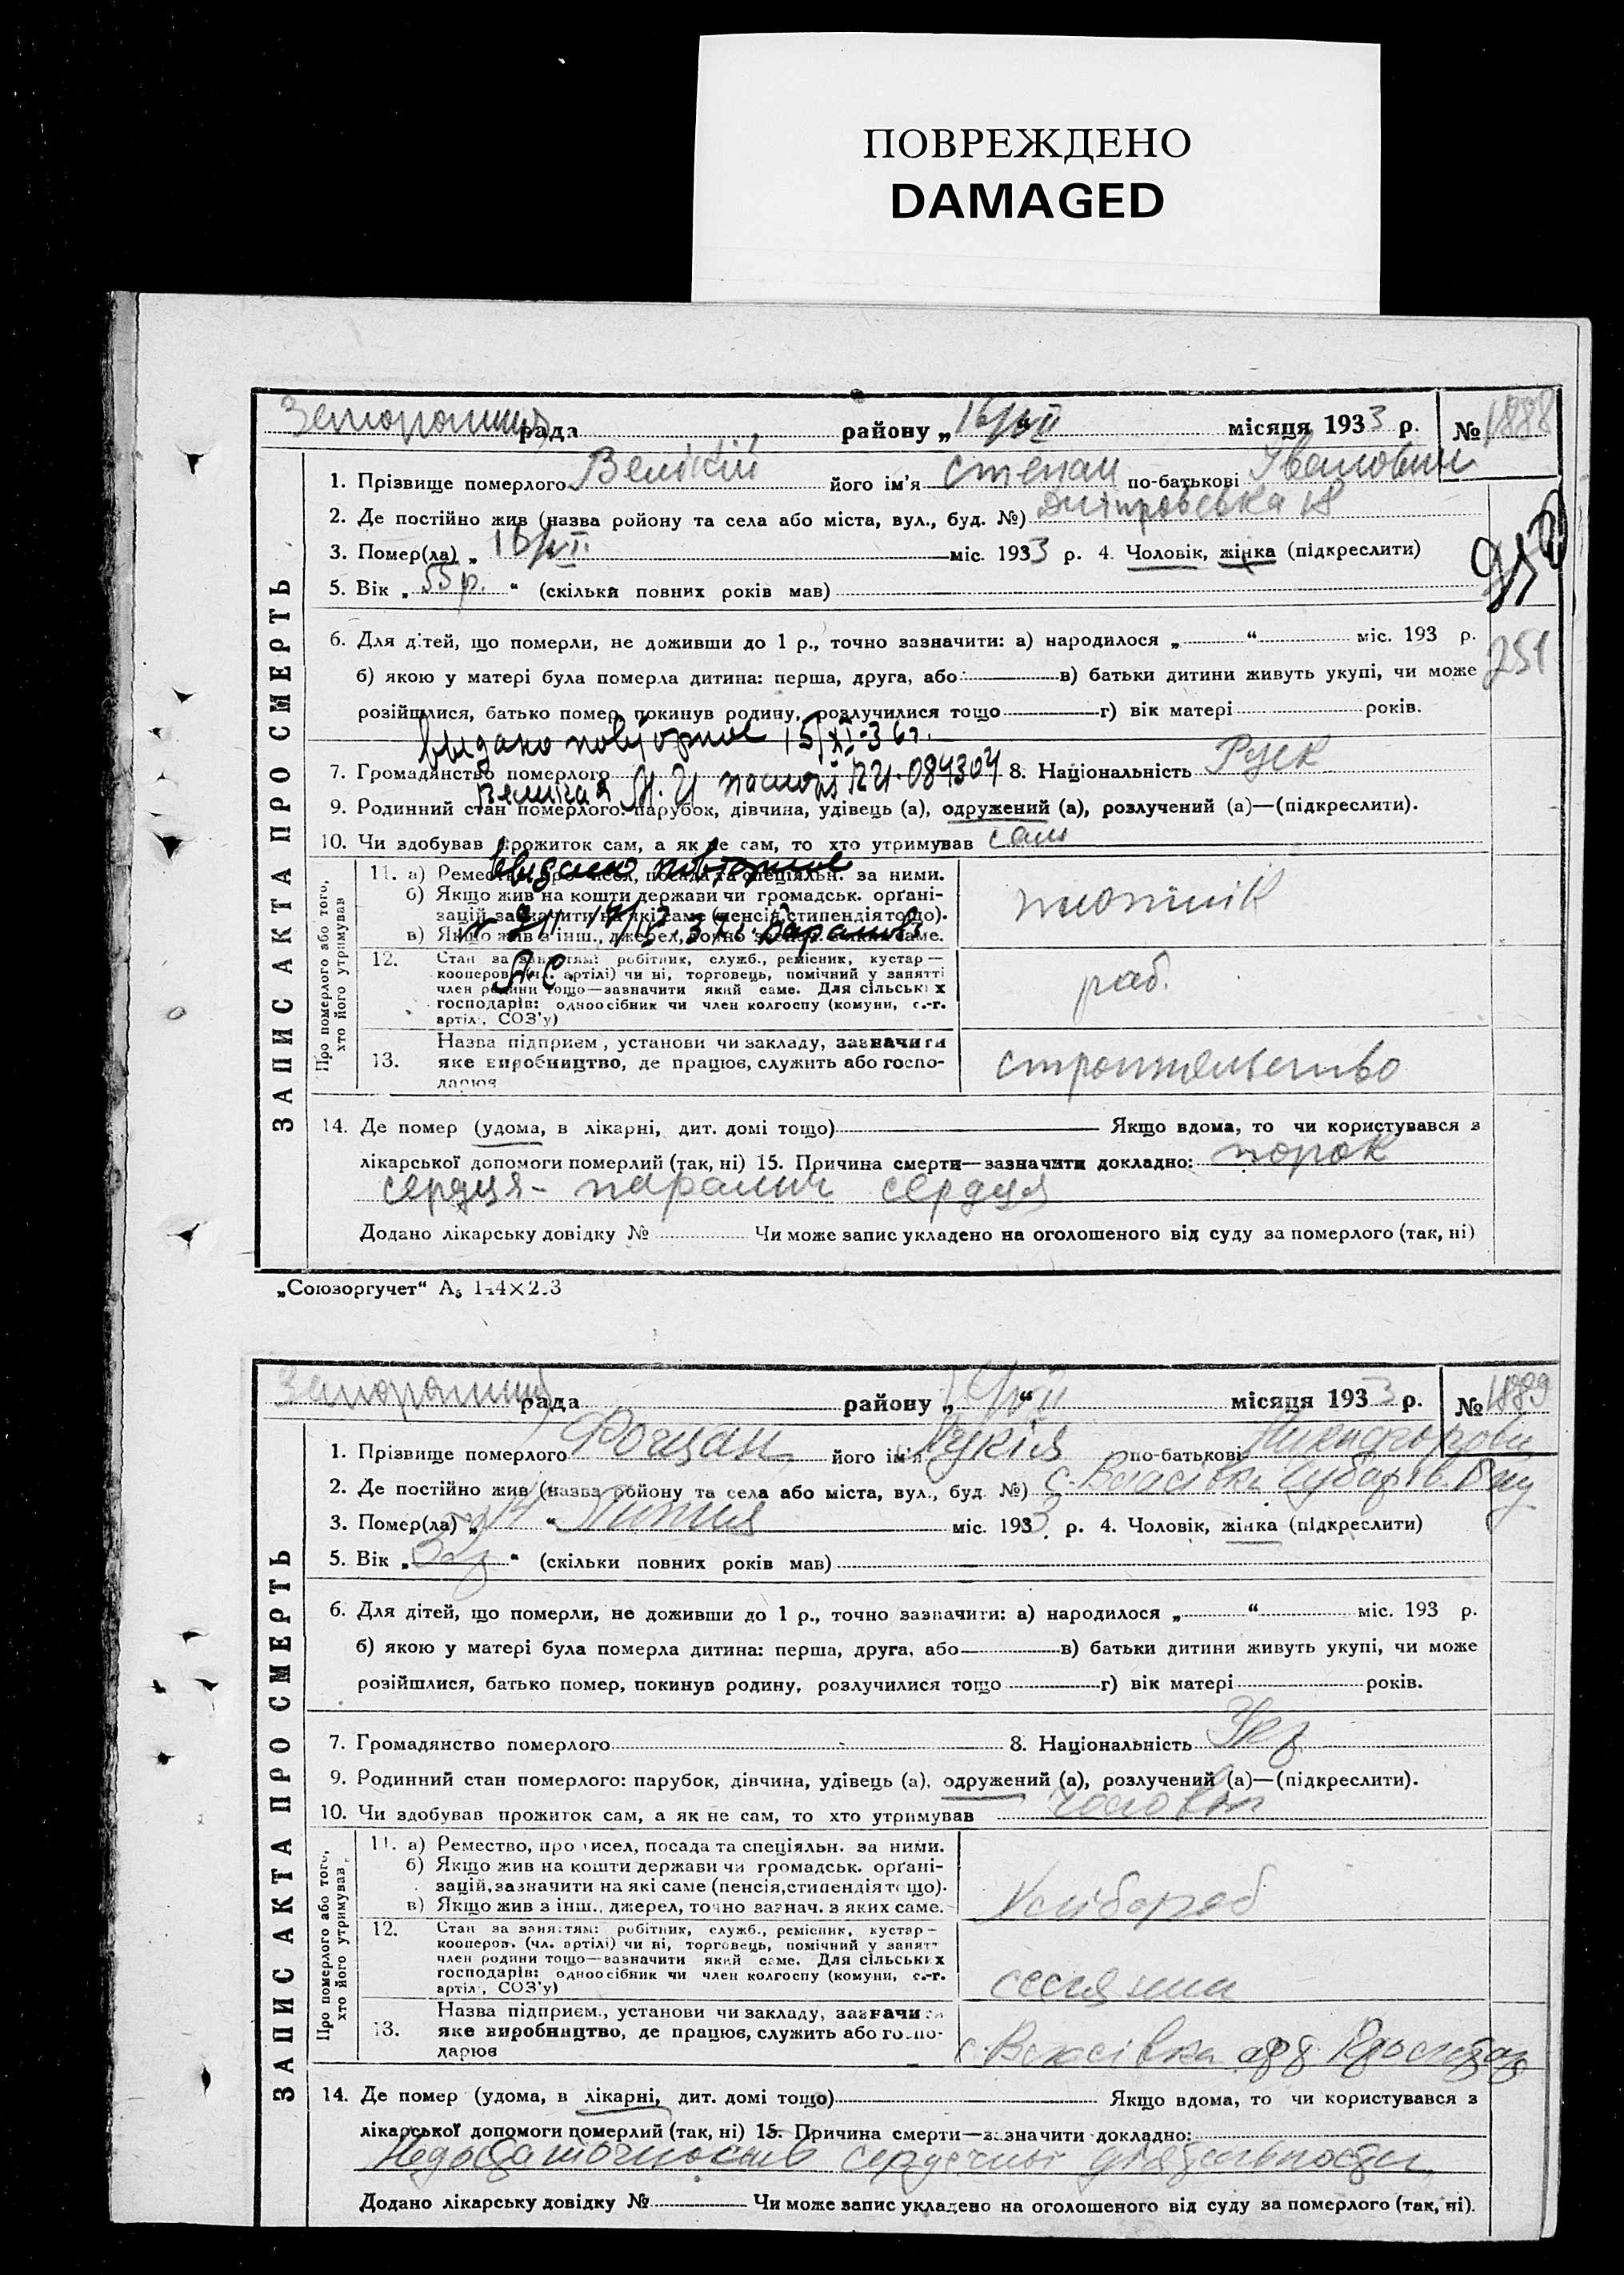 ПОВРЕЖДЕНО
DAMAGED
рада району „16/VII місяця 1933 р. № 1888
ЗАПИС АКТА ПРО СМЕРТЬ
1. Прізвище померлого Великий його ім'я Степан по-батькові Іванович
2. Де постійно жив (назва ройону та села або міста, вул., буд. №) Дніпровська 18
3. Помер(ла) „ міс. 1933 р. 4. Чоловік, жінка (підкреслити)
5. Вік „ 55 р. “ (скільки повних років мав)
6. Для дітей, що померли, не доживши до 1 р., точно зазначити: а) народилося „ “ міс. 193 р.
251
б) якою у матері була померла дитина: перша, друга, або в) батьки дитини живуть укупі, чи може
розійшлися, батько помер, покинув родину, розлучилися тощо г) вік матері років.
выдано повторное 15/XI-36 г.
7. Громадянство померлого 8. Національність Руск
Великая М. И паспорт 084304
9. Родинний стан померлого: парубок, дівчина, удівець (а), одружений (а), розлучений (а)—(підкреслити).
10. Чи здобував прожиток сам, а як не сам, то хто утримував сам
Про померлого або того,
хто його утримував
выдано повторное
11. а) Ремество, промисел, посада та спеціяльн. за ними.
б) Якщо жив на кошти держави чи громадськ. орґані-
зацій, зазначити на які саме (пенсія, стипендія тощо).
в) Якщо жив з інш., джерел, точно зазнач. з яких саме.
плотнік
12. Стан за заняттям: робітник, служб., ремісник, кустар—
кооперов. (чл. артілі) чи ні, торговець, помічний у занятті
член родини тощо—зазначити який саме. Для сільських
господарів: одноосібник чи член колгоспу (комуни, с.-г.
артіл., СОЗ'у)
раб.
Назва підприєм., установи чи закладу, зазначити
13. яке виробництво, де працює, служить або госпо-
дарює
строительство
14. Де помер (удома, в лікарні, дит. домі тощо) Якщо вдома, то чи користувався з
лікарської допомоги померлий (так, ні) 15. Причина смерти—зазначити докладно: порок
сердця - паралич сердця
Додано лікарську довідку № Чи може запис укладено на оголошеного від суду за померлого (так, ні)
„Союзоргучет“
рада району „ “ місяця 1933 р. № 1889
ЗАПИС АКТА ПРО СМЕРТЬ
1. Прізвище померлого його ім'я Лукія по-батькові
2. Де постійно жив (назва ройону та села або міста, вул., буд. №) с. Власівка
3. Помер(ла) „ “ Липня міс. 1933 р. 4. Чоловік, жінка (підкреслити)
5. Вік „ “ (скільки повних років мав)
6. Для дітей, що померли, не доживши до 1 р., точно зазначити: а) народилося „ “ міс. 193 р.
б) якою у матері була померла дитина: перша, друга, або в) батьки дитини живуть укупі, чи може
розійшлися, батько помер, покинув родину, розлучилися тощо г) вік матері років.
7. Громадянство померлого 8. Національність Укр
9. Родинний стан померлого: парубок, дівчина, удівець (а), одружений (а), розлучений (а)—(підкреслити).
10. Чи здобував прожиток сам, а як не сам, то хто утримував чоловік
Про померлого або того,
хто його утримував
11. а) Ремество, промисел, посада та спеціяльн. за ними.
б) Якщо жив на кошти держави чи громадськ. орґані-
зацій, зазначити на які саме (пенсія, стипендія тощо).
в) Якщо жив з інш., джерел, точно зазнач. з яких саме.
Хлібороб
12. Стан за заняттям: робітник, служб., ремісник, кустар—
кооперов. (чл. артілі) чи ні, торговець, помічний у занятт
член родини тощо—зазначити який саме. Для сільських
господарів: одноосібник чи член колгоспу (комуни, с.-г.
артіл., СОЗ'у)
селянин
Назва підприєм., установи чи закладу, зазначити
13. яке виробництво, де працює, служить або госпо-
дарює
с. Власівка
14. Де помер (удома, в лікарні, дит. домі тощо) Якщо вдома, то чи користувався з
лікарської допомоги померлий (так, ні) 15. Причина смерти—зазначити докладно:
Недостаточность сердечної
Додано лікарську довідку № Чи може запис укладено на оголошеного від суду за померлого (так, ні).